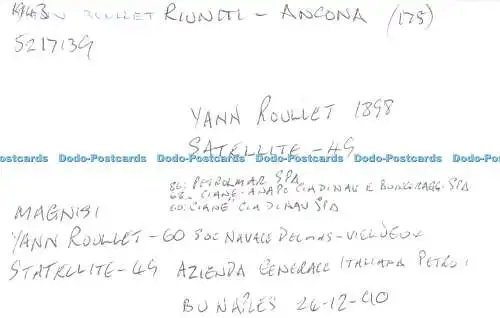 RIUNITI - ANCONA (175)
521713G
YANN ROULLET 1898
SATELLITE - 49
Dodo-Postcards Dodo-Postcards Dodo-Postcards Dodo-Postcards Dodo-Postcards
86: PETROLMAR SPA
68- CIANE-ANAPO CIA DI NAV E BUNGRAGGI-SPA
60: CIANE CIA DI NAV SPA
MAGNISI
YANN ROULLET - 60 SOC NAVALE DELMAS-VIELJEUX
STATELLITE - 49 AZIENDA GENERALE ITALIANA PETROLI
26-12-40